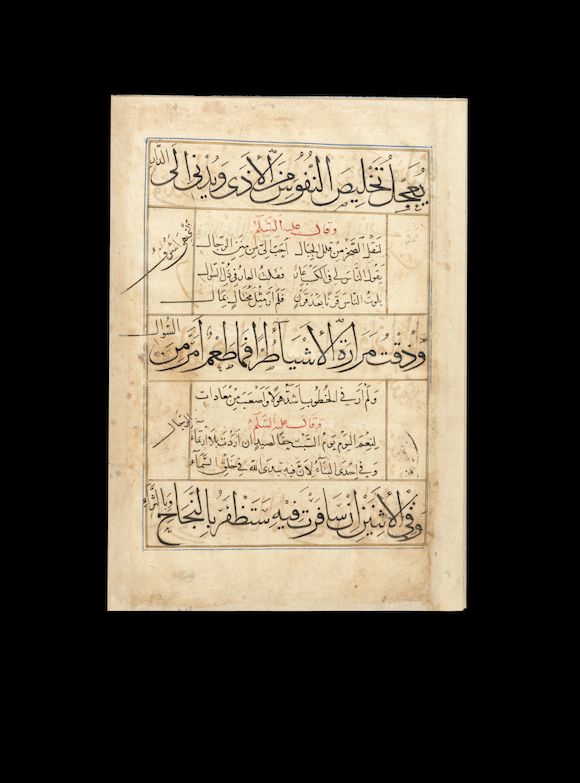 يُعَجِّلُ تَخْلِيصَ النُّفُوسِ مِنَ الْأَذَى وَيُدْنِي إِلَى الدَّارِ
الَّتِي هِيَ أَشْرَفُ
وقال عليه السلام
لنقل الصخر من قلل الجبال احب الى من منن الرجال
يقول الناس لى فى الكسب عار فقلت العار فى ذل السؤال
بلوت الناس قرنا بعد قرن فلم ار مثل مختال بمال
وَذُقْتُ مَرَارَةَ الْأَشْيَا طُرًّا فَمَا طَعْمٌ أَمَرَّ مِنَ السُّؤَالِ
ولم ار فى الخطوب اشد هولا واصعب من معادات الرجال
وقال عليه السلام
لنعم اليوم يوم السبت حقا لصيد ان اردت بلا امتراء
وفى احدى البناء لان فيه تبدى الله فى خلق السماء
وَفِي الْإِثْنَيْنِ إِنْ سَافَرْتَ فِيهِ سَتَظْفَرُ بِالنَّجَاحِ وَبِالثَّرَاءِ